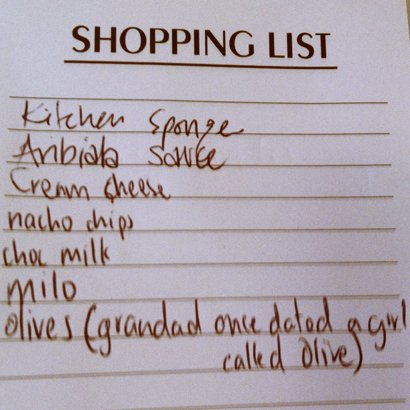 SHOPPING LIST
Kitchen sponge
Aribiata sauce
Cream cheese
nacho chips
choc milk
milo
olives (grandad once dated a girl
called Olive)